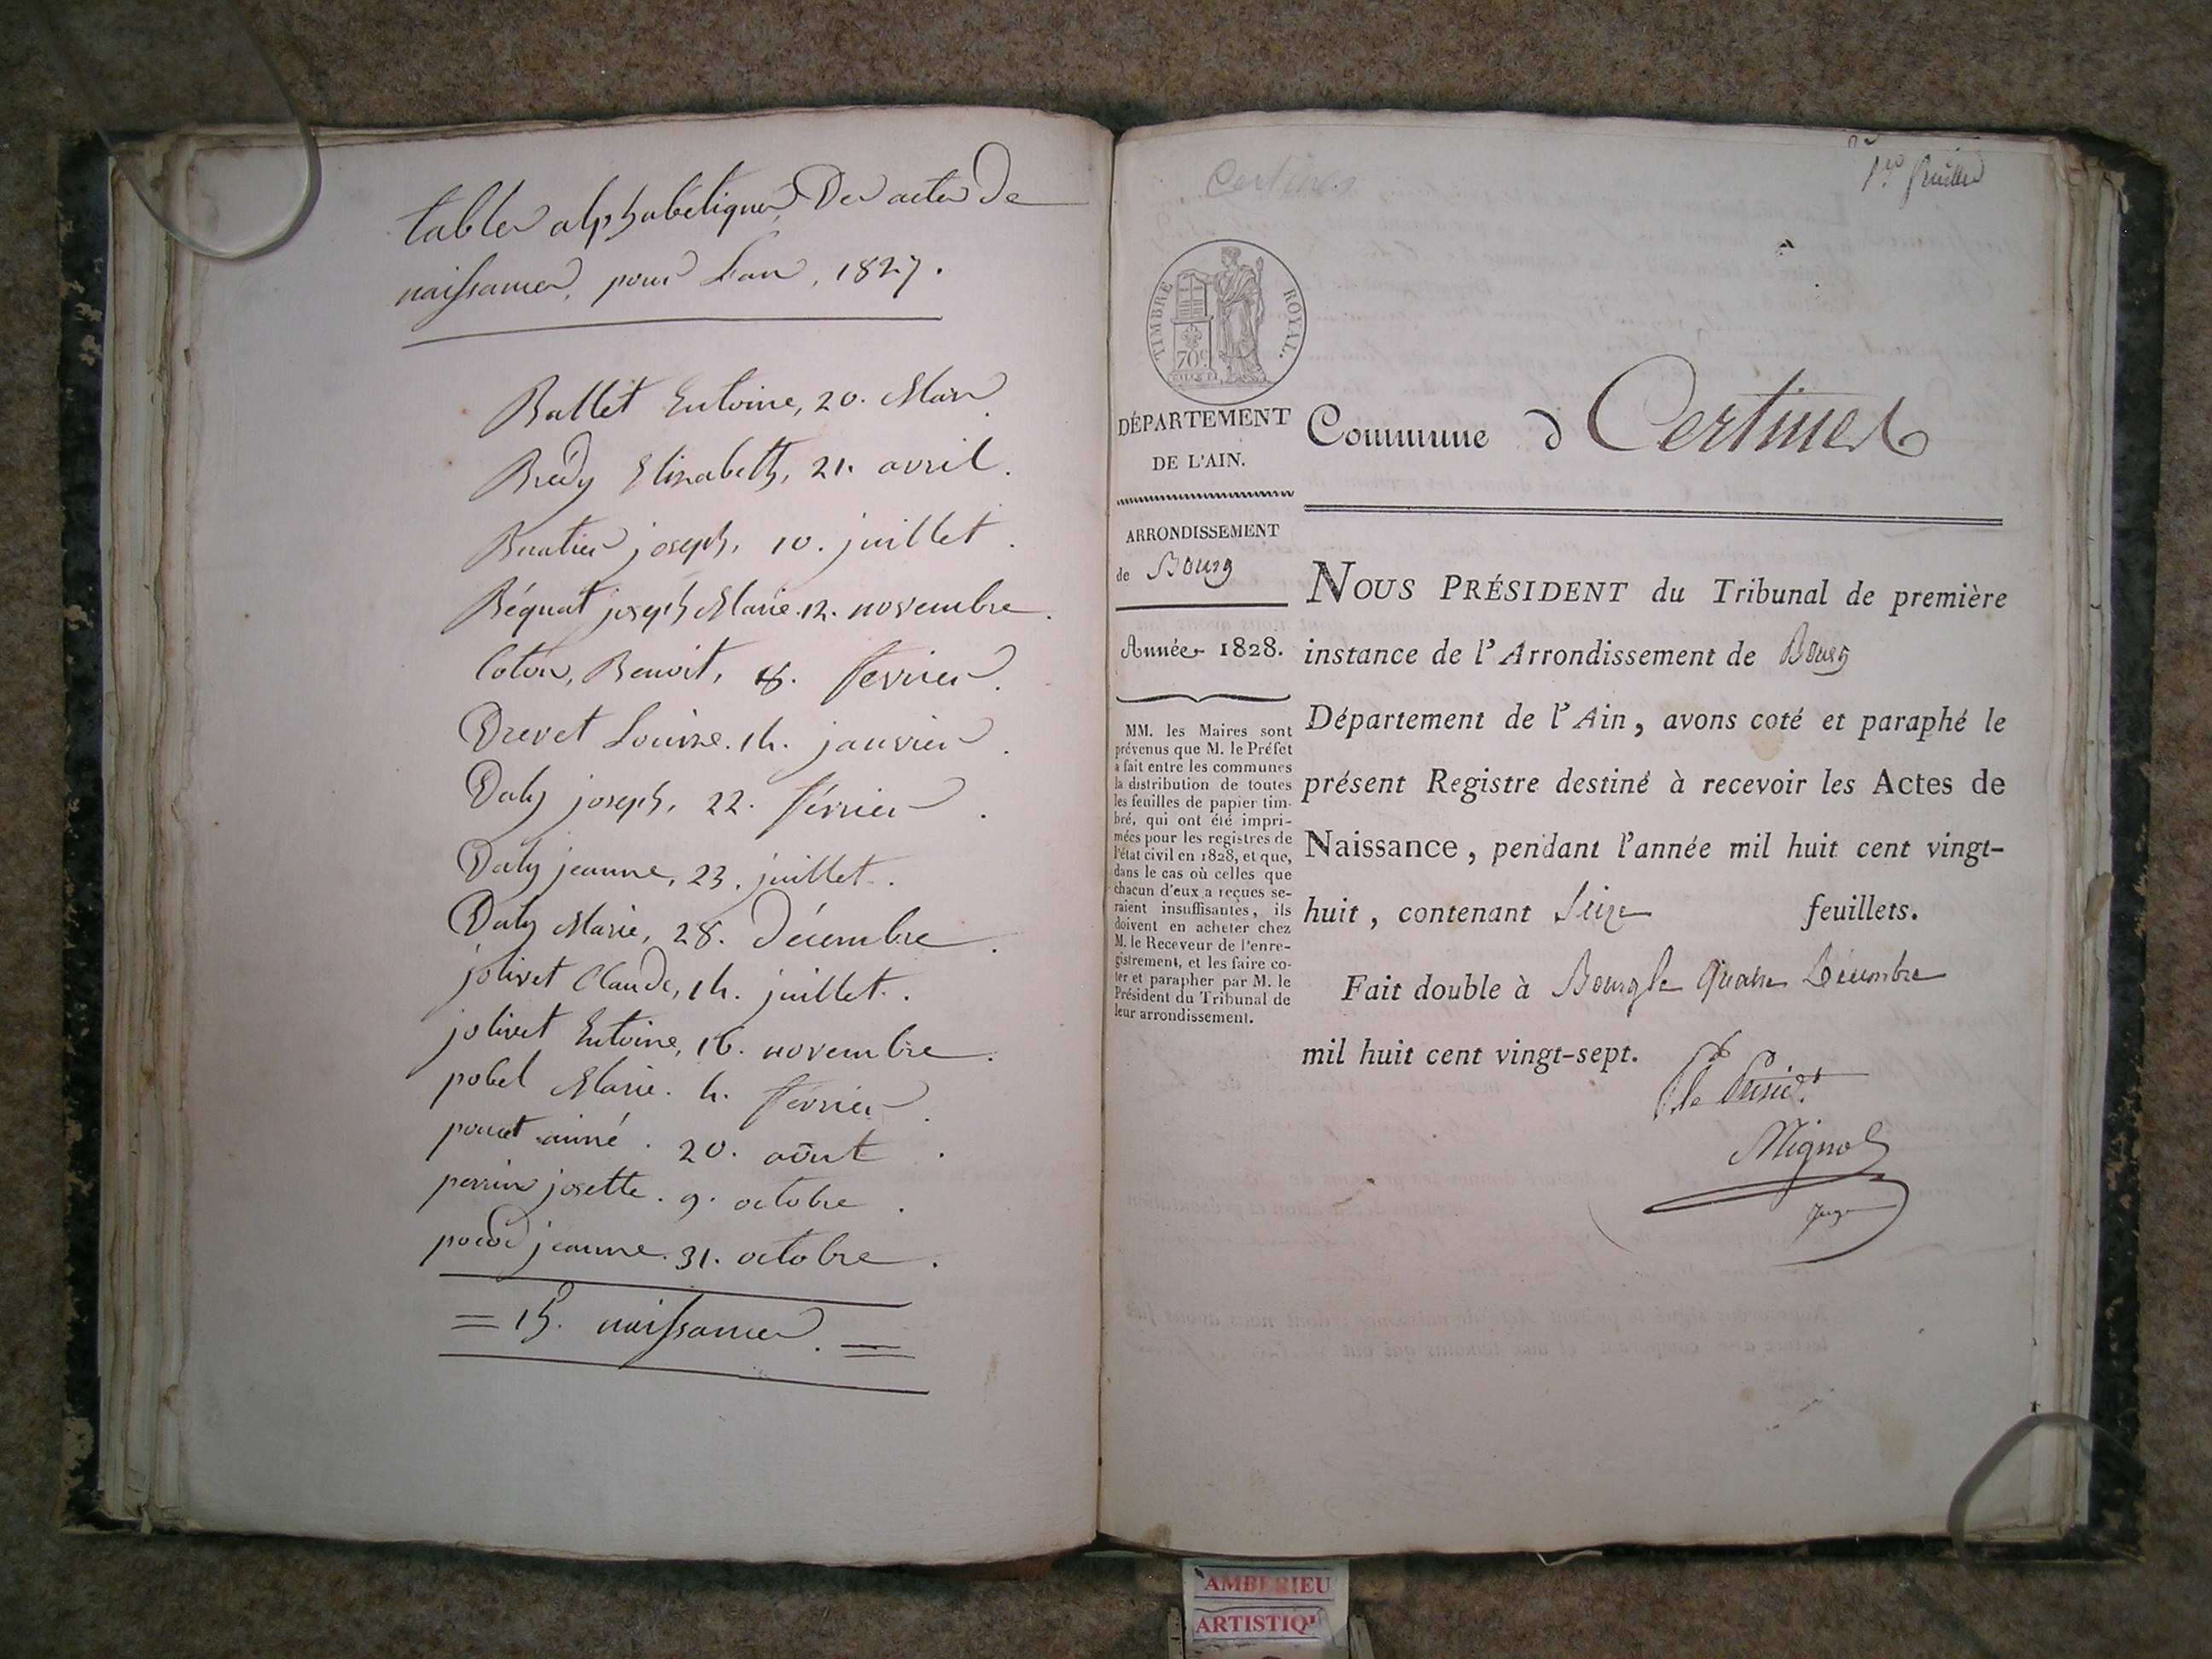 tables alphabétiques Des actes de
naissances, pour L'an, 1827.
Ballet Entoine, 20. Mars
Brédy Elisabeth, 21. avril.
Buatier joseph, 10. juillet.
Béquat joseph Marie. 12. novembre.
Coton, Benoit, 8. fevrier.
Drevet Louise. 14. janvier.
Daly joseph, 22. février.
Daly jeanne, 23. juillet.
Daly Marie, 28. Décembre.
jolivet Claude, 14. juillet.
jolivet Entoine, 16. novembre.
pobel Marie. 4. février.
aimé. 20. août.
perrin josette. 9. octobre.
jeanne. 31. octobre.
= 15. naissances. =
Certines
1er feuillet
TIMBRE ROYAL.
70c
DÉPARTEMENT
DE L'AIN.
Commune d Certines
ARRONDISSEMENT
de Bourg
Année 1828.
MM. les Maires sont
prévenus que M. le Préfet
a fait entre les communes
la distribution de toutes
les feuilles de papier tim-
bré, qui ont été impri-
mées pour les registres de
l'état civil en 1828, et que,
dans le cas où celles que
chacun d'eux a reçues se-
raient insuffisantes, ils
doivent en acheter chez
M. le Receveur de l'enre-
gistrement, et les faire co-
ter et parapher par M. le
Président du Tribunal de
leur arrondissement.
NOUS PRÉSIDENT du Tribunal de première
instance de l'Arrondissement de Bourg
Département de l'Ain, avons coté et paraphé le
présent Registre destiné à recevoir les Actes de
Naissance, pendant l'année mil huit cent vingt-
huit, contenant Seize feuillets.
Fait double à Bourg le Décembre
mil huit cent vingt-sept.
Mignol
Juge
AMBERIEU
ARTISTIQ